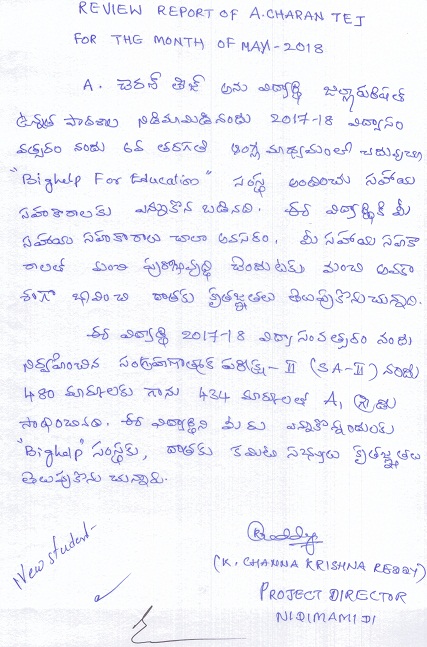 REVIEW REPORT OF A.CHARAN TEJ
FOR THE MONTH OF MAY-2018
A. చెరణ్ తేజ్ అను విద్యార్థి జిల్లాపరిషత్
ఉన్నత పాఠశాల నిడిమామిడి నందు 2017-18 విద్యాసం
వత్సరం నందు 6వ తరగతి ఆంగ్ల మాధ్యమంలో చదువుచూ
"Bighelp For Education" సంస్థ అందించు సహాయ
సహకారాలకు ఎన్నికైన బడినది. ఈ విద్యార్థికి మీ
సహాయ సహకారాలు చాలా అవసరం. మీ సహాయ సహకా
రాలతో మంచి పురోభివృద్ధి చెందుటకు మంచి అవకా
శంగా భావించి దాతకు కృతజ్ఞతలు తెలుపుకొనుచున్నారు.
ఈ విద్యార్థి 2017-18 విద్యా సంవత్సరం నందు
నిర్వహించిన సంగ్రహణాత్మక పరీక్ష - II (SA-II) నందు
480 మార్కులకు గాను 434 మార్కులతో A1 గ్రేడు
సాధించినది. ఈ విద్యార్థిని మీరు ఎన్నికొన్నందుకు
"Bighelp" సంస్థకు, దాతకు కమిటి సభ్యులు కృతజ్ఞతలు
తెలుపుకొను చున్నారు.
Reddy
(K. CHANNA KRISHNA REDDY)
PROJECT DIRECTOR
NIDIMAMIDI
New student-